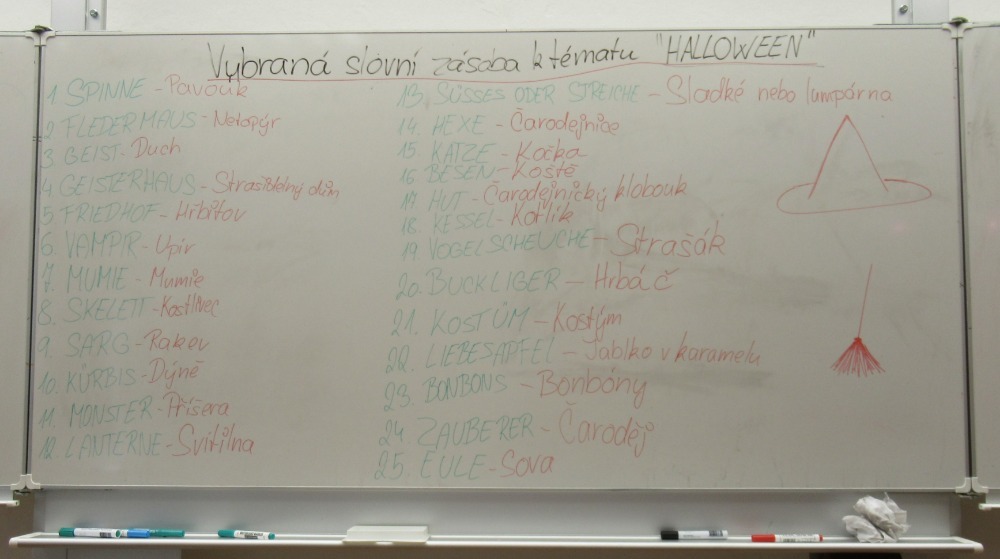 Vybraná slovní zásoba k tématu "HALLOWEEN"
1 SPINNE - Pavouk
2 FLEDERMAUS - Netopýr
3 GEIST - Duch
4 GEISTERHAUS - Strašidelný dům
5 FRIEDHOF - Hřbitov
6. VAMPIR - Upír
7. MUMIE - Mumie
8. SKELETT - Kostlivec
9. SARG - Rakev
10. KÜRBIS - Dýně
11. MONSTER - Příšera
12. LANTERNE - Svítilna
13. SÜSSES ODER STREICHE - Sladké nebo lumpárna
14. HEXE - Čarodejnice
15. KATZE - Kočka
16 BESEN - Koště
17 HUT - Čarodejnický klobouk
18. KESSEL - Kotlík
19 VOGELSCHEUCHE - Strašák
20. BUCKLIGER - Hrbáč
21. KOSTÜM - Kostým
22. LIEBESAPFEL - Jablko v karamelu
23. BONBONS - Bonbóny
24. ZAUBERER - Čaroděj
25. EULE - Sova